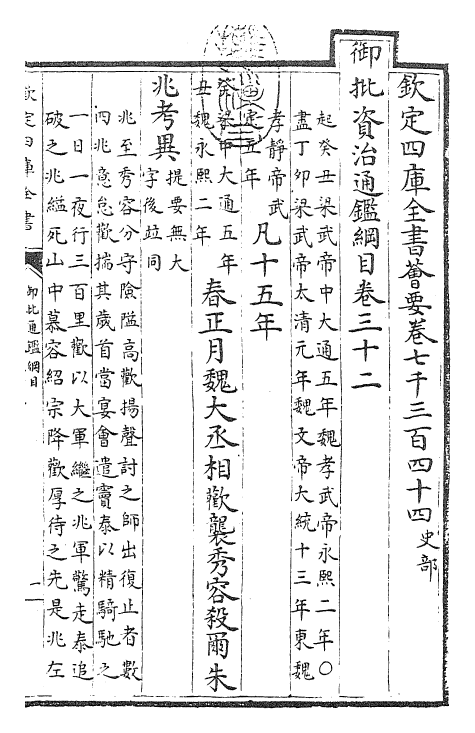 欽定四庫全書薈要卷七千三百四十四 史部
御批資治通鑑綱目卷三十二
起癸丑梁武帝中大通五年魏孝武帝永熙二年〇
盡丁卯梁武帝太清元年魏文帝大統十三年東魏
孝靜帝武
定五年
凡十五年
癸梁中大通五年
丑魏永熙二年
春正月魏大丞相歡襲秀容殺爾朱
兆考異
提要無大
字後竝同
兆至秀容分守險隘高歡揚聲討之師出復止者數
四兆意怠歡揣其歲首當宴會遣竇泰以精騎馳之
一日一夜行三百里歡以大軍繼之兆軍驚走泰追
破之兆縊死山中慕容紹宗降歡厚待之先是兆左
欽定四庫全書
御批通鑑綱目
一